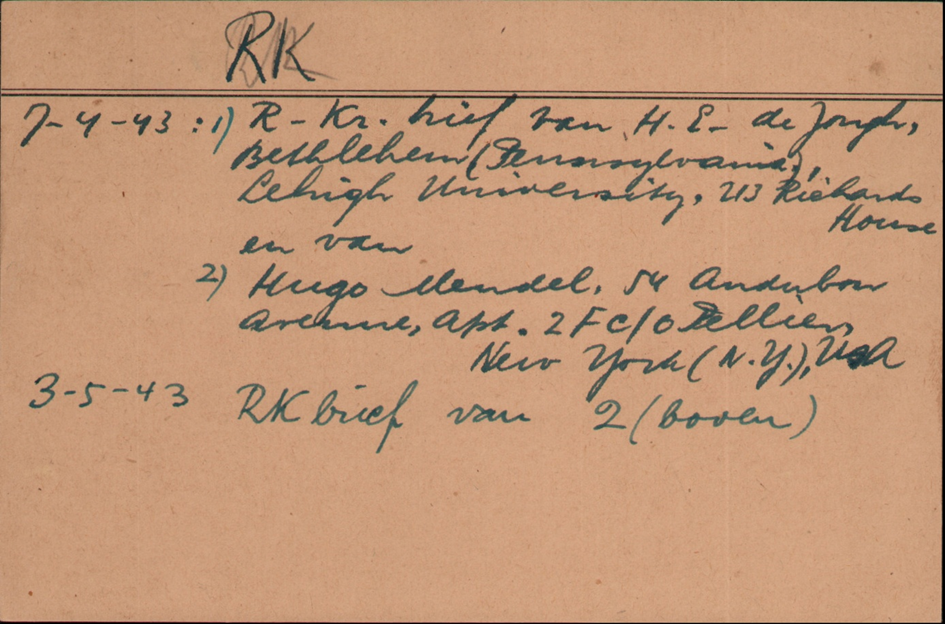 RK
7-4-43 : 1) R-Kr. brief van H.E. de Jongh,
Bethlehem (Pennsylvania),
Lehigh University, 213 Richards
House
en van
2) Hugo Mendel, 54 Audubon
Avenue, Apt. 2F c/o Pellier,
New York (N.Y.), USA
3-5-43 RK brief van 2 (boven)